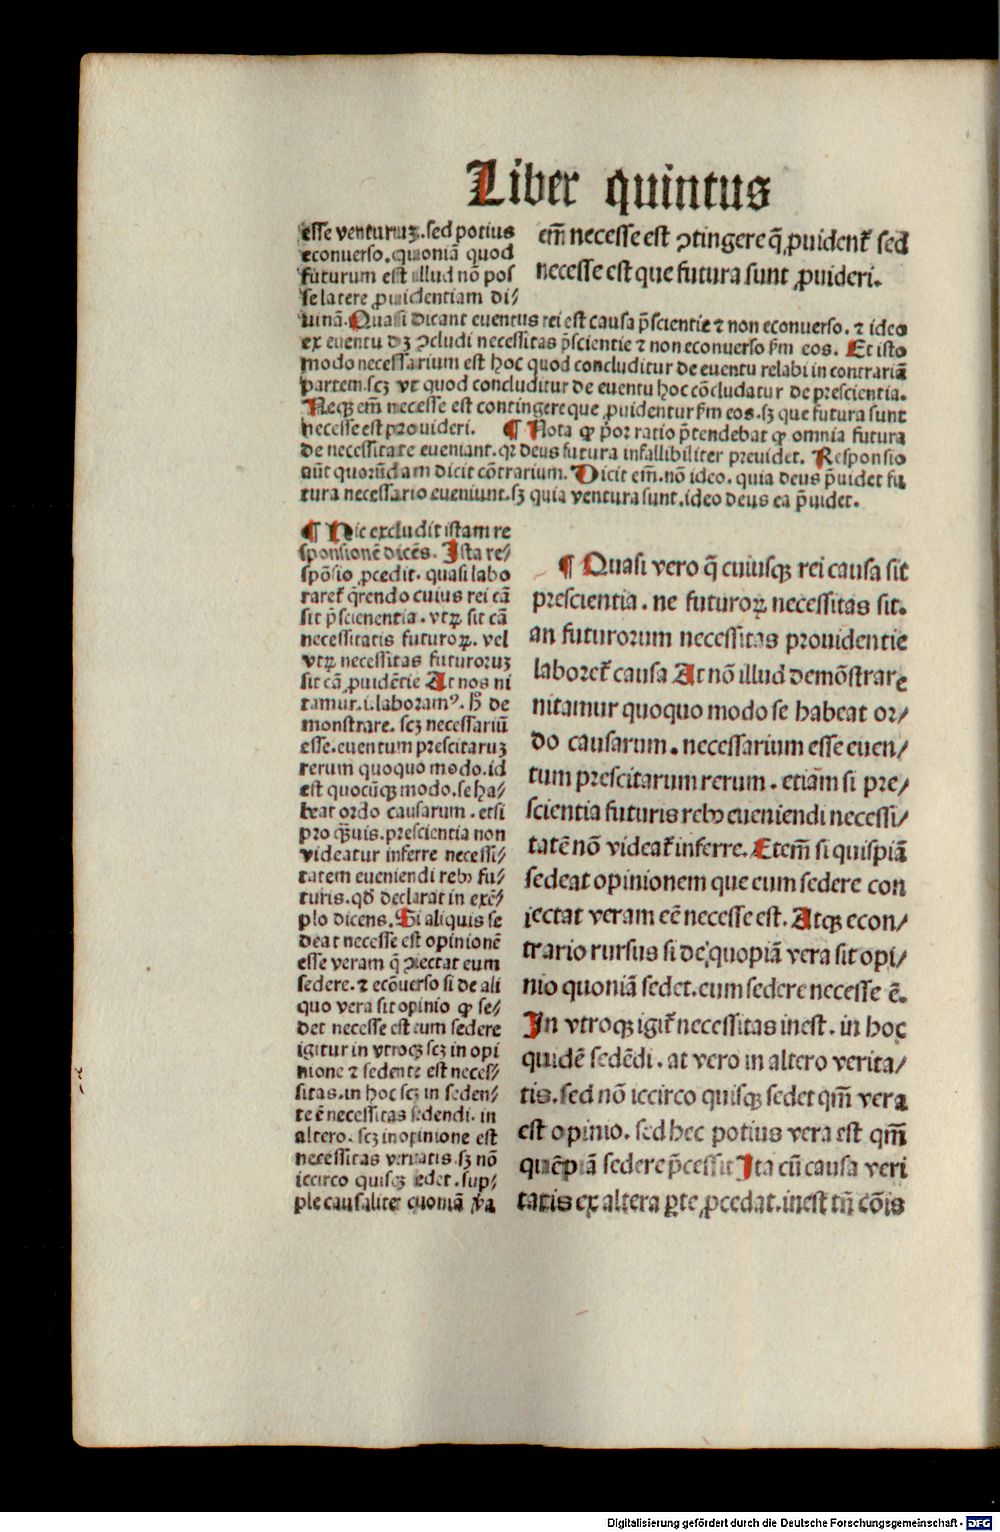 Liber quintus
esse venturuꝫ. sed potius
econuerso. quoniā quod
futurum est illud nō pos
se latere ꝓuidentiam di/
em̄ necesse est ꝯtingere q̄ ꝓuident᷑ sed
necesse est que futura sunt ꝓuideri.
uinā. Quasi dicant euentus rei est causa p̄scientie ⁊ non econuerso. ⁊ ideo
ex euentu dꝫ ꝯcludi necessitas p̄scientie ⁊ non econuerso ẜm eos. Et isto
modo necessarium est hoc quod concluditur de euentu relabi in contrariā
partem. scꝫ vt quod concluditur de euentu hoc cōcludatur de prescientia.
Neqꝫ em̄ necesse est contingere que ꝓuidentur ẜm eos. sꝫ que futura sunt
necesse est prouideri. ¶ Nota ꝙ p̄or ratio p̄tendebat ꝙ omnia futura
de necessitate eueniant. qꝛ deus futura infallibiliter preuidet. Responsio
aūt quorūdam dicit cōtrarium. Dicit em̄. nō ideo. quia deus p̄uidet fu
tura necessario eueniunt. sꝫ quia ventura sunt. ideo deus ea p̄uidet.
¶ Hic excludit istam re
sponsionē dicēs. Ista re/
spōsio ꝓcedit. quasi labo
raret᷑ q̄rendo cuius rei cā
sit p̄scienentia. vtꝝ sit cā
necessitatis futuroꝝ. vel
vtꝝ necessitas futuroruꝫ
sit cā ꝓuidētie At nos ni
tamur. i. laboramꝰ. hͦ de
monstrare. scꝫ necessariū
esse. euentum prescitaruꝫ
rerum quoquo modo. id
est quocūqꝫ modo. se ha/
beat ordo causarum. etsi
pro q̄uis. prescientia non
videatur inferre necessi/
tatem eueniendi rebꝰ fu/
turis. qd̄ declarat in exē/
plo dicens. Si aliquis se
deat necesse est opinionē
esse veram q̄ ꝯiectat eum
sedere. ⁊ ecōuerso si de ali
quo vera sit opinio ꝙ se/
det necesse est eum sedere
igitur in vtroqꝫ scꝫ in opi
nione ⁊ sedente est neces/
sitas. in hoc scꝫ in seden/
te ē necessitas sedendi. in
altero. scꝫ in opinione est
necessitas veritatis. sꝫ nō
iccirco quisqꝫ sedet. sup/
ple causaliter quoniā
¶ Quasi vero q̄ cuiusqꝫ rei causa sit
prescientia. ne futuroꝝ necessitas sit.
an futurorum necessitas prouidentie
laboret᷑ causa At nō illud demōstrare
nitamur quoquo modo se habeat or/
do causarum. necessarium esse euen/
tum prescitarum rerum. etiam si pre/
scientia futuris rebꝰ eueniendi necessi/
tatē nō videat᷑ inferre. Etem̄ si quispiā
sedeat opinionem que eum sedere con
iectat veram eē necesse est. Atqꝫ econ/
trario rursus si de quopiā vera sit opi/
nio quoniā sedet. eum sedere necesse ē.
In vtroqꝫ igit᷑ necessitas inest. in hoc
quidē sedēdi. at vero in altero verita/
tis. sed nō iccirco quisqꝫ sedet qm̄ vera
est opinio. sed hec potius vera est qm̄
quēpiā sedere p̄cessit Ita cū causa veri
tatis ex altera ꝑte ꝓcedat. inest tn̄ cōis
Digitalisierung gefördert durch die Deutsche Forschungsgemeinschaft - DFG